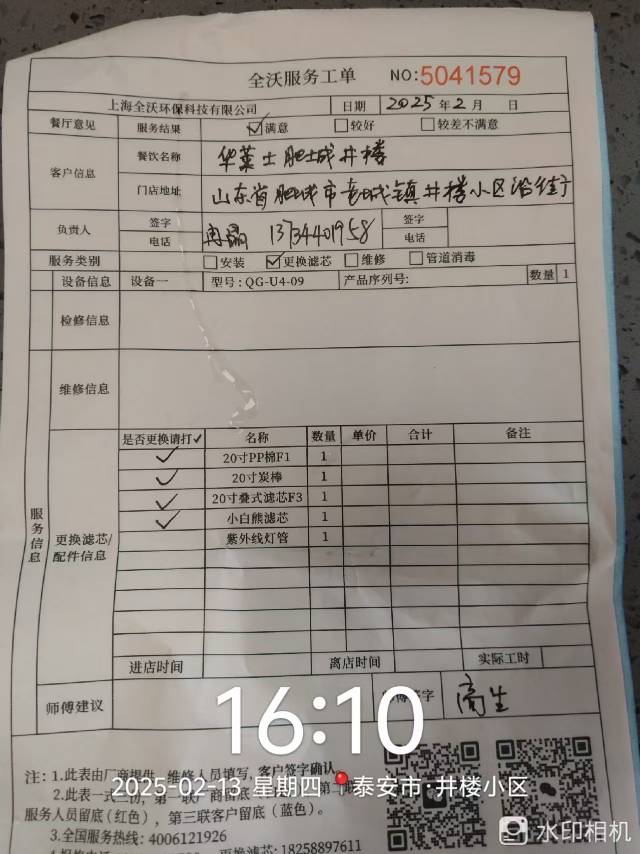 全沃服务工单 NO:5041579
上海全沃环保科技有限公司 日期 2025年2月 日
餐厅意见 服务结果 ☑满意 □较好 □较差不满意
客户信息 餐饮名称 华莱士肥城井楼
门店地址 山东省肥城市老城镇井楼小区沿街
负责人 签字 签字
电话 冉 13734401958 电话
服务类别 □安装 ☑更换滤芯 □维修 □管道消毒
设备信息 设备一 型号:QG-U4-09 产品序列号: 数量 1
检修信息
维修信息
服务信息
是否更换请打✓ 名称 数量 单价 合计 备注
✓ 20寸PP棉F1 1
✓ 20寸炭棒 1
✓ 20寸叠式滤芯F3 1
✓ 小白熊滤芯 1
紫外线灯管 1
更换滤芯/配件信息
进店时间 离店时间 实际工时
师傅建议 签字 高生
16:10
2025-02-13 星期四 泰安市·井楼小区
注:1.此表由厂商提供,维修人员填写,客户签字确认。
2.此表一式三份,第一联厂商留底
服务人员留底(红色),第三联客户留底(蓝色)。
3.全国服务热线:4006121926
更换滤芯:18258897611
水印相机